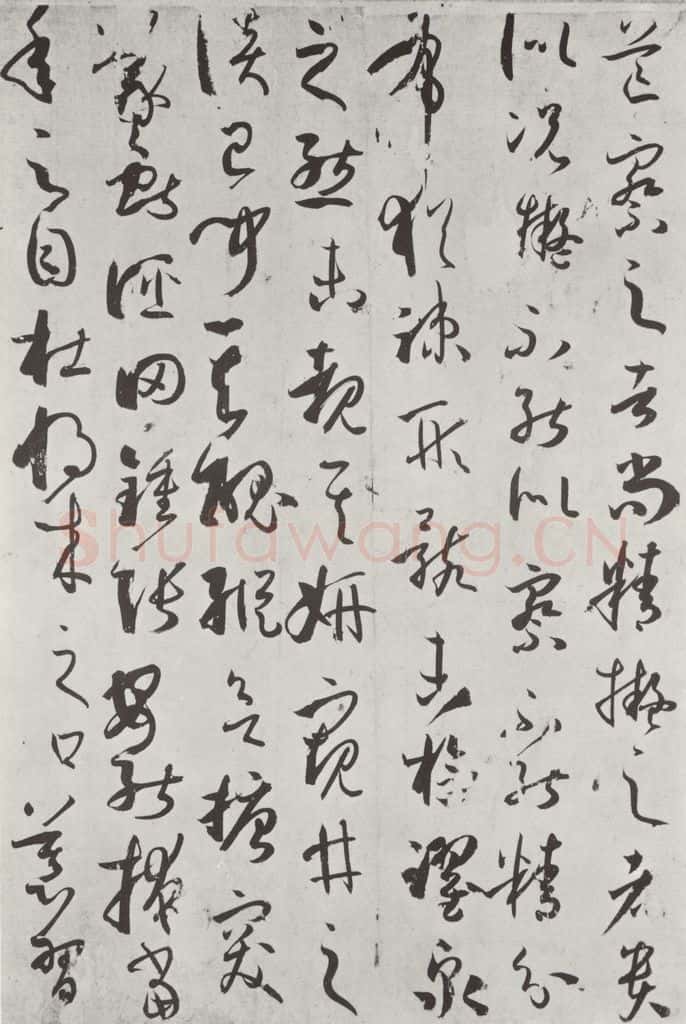 察之者尚精擬之者貴
似況擬不能似察不能精分
布猶疎形骸未檢躍泉
之態未覩其妍窺井之
談已聞其醜縱欲搪突
羲獻誣罔鍾張安能掩當
年之目杜將來之口慕習
Shufawang.CN